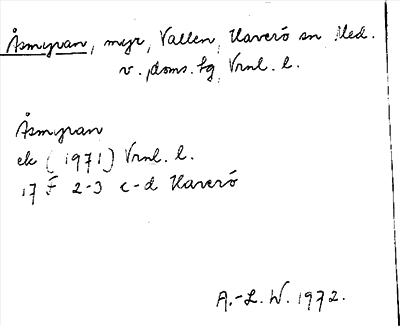 Åsmyran, myr, Vallen, Haverö sn Med.
v. doms. sg, Vrnl. l.
Åsmyran
ek (1971) Vrnl. l.
17 F 2-3 c-d Haverö
A.-L. W. 1972.